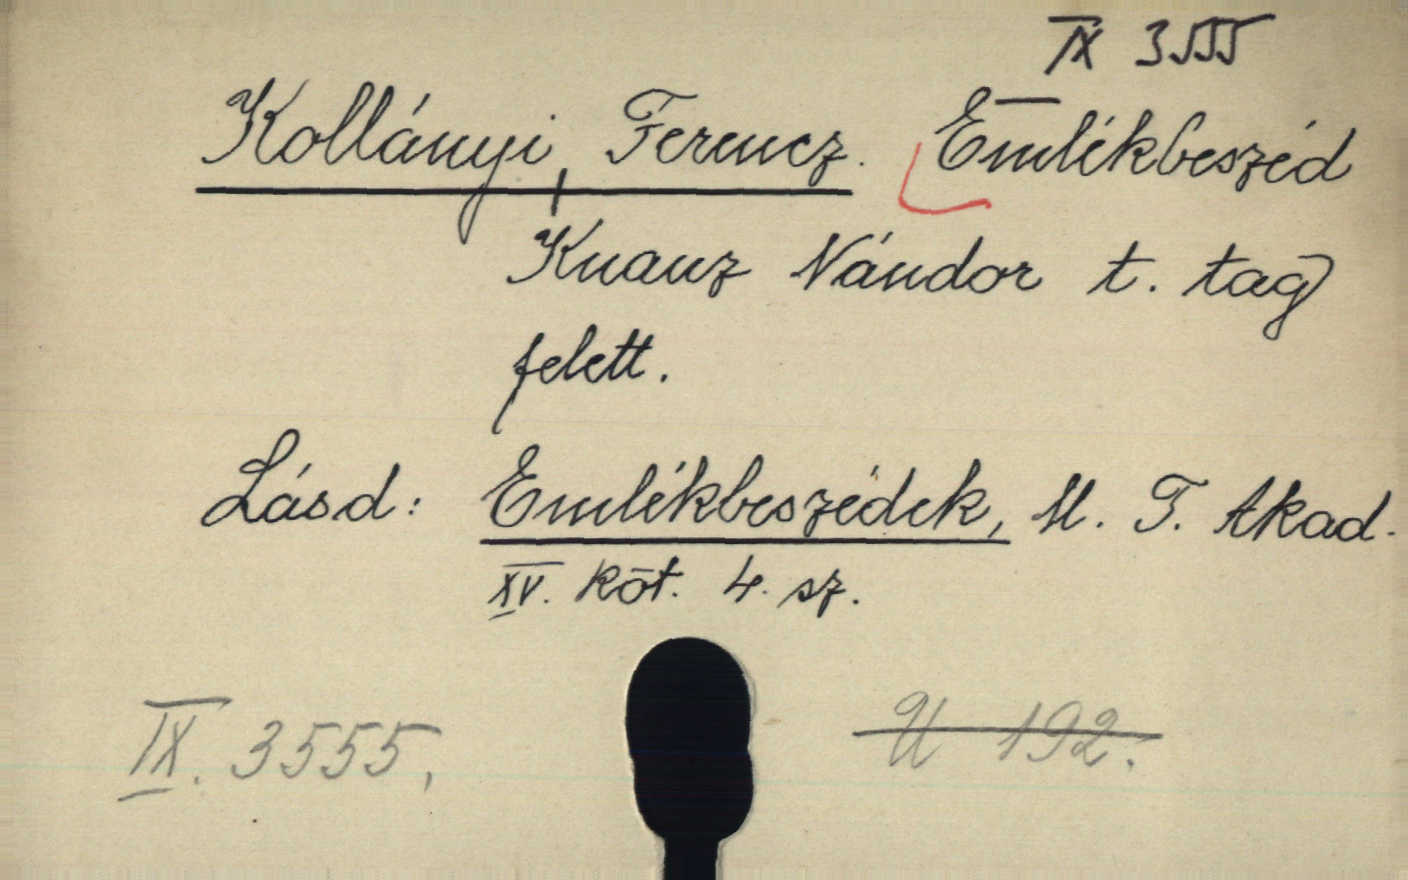 IX 3555
Kollányi, Ferencz. Emlékbeszéd
Knauz Nándor t. tag
felett.
Lásd: Emlékbeszédek, M. T. Akad.
XV. köt. 4. sz.
IX. 3555.
U 192.